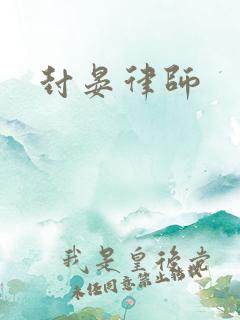 封晏律師
我是皇後党
未经同意禁止转载